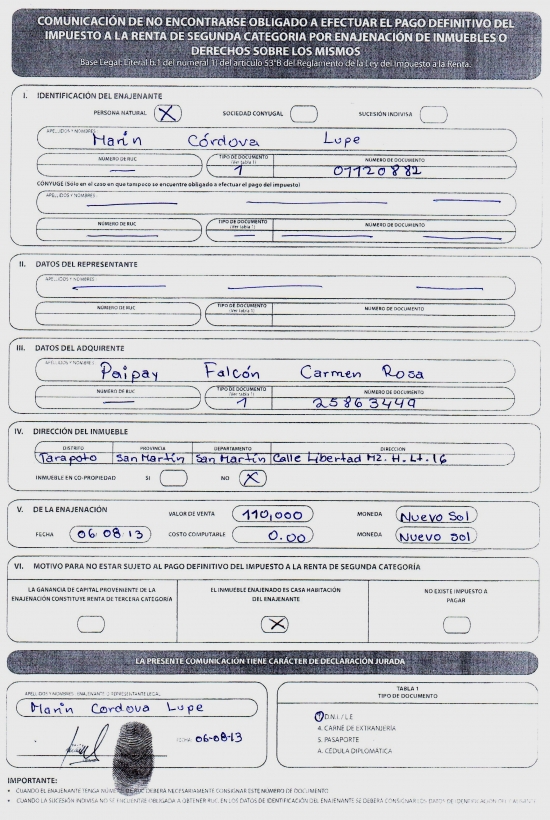 COMUNICACIÓN DE NO ENCONTRARSE OBLIGADO A EFECTUAR EL PAGO DEFINITIVO DEL
IMPUESTO A LA RENTA DE SEGUNDA CATEGORIA POR ENAJENACIÓN DE INMUEBLES O
DERECHOS SOBRE LOS MISMOS
Base Legal: Literal b.1 del numeral 1) del artículo 53°B del Reglamento de la Ley del Impuesto a la Renta.
I. IDENTIFICACIÓN DEL ENAJENANTE
PERSONA NATURAL X SOCIEDAD CONYUGAL SUCESIÓN INDIVISA
APELLIDOS Y NOMBRES
Marin Córdova Lupe
NÚMERO DE RUC TIPO DE DOCUMENTO (Ver tabla 1) NÚMERO DE DOCUMENTO
— 1 01120882
CONYUGE (Sólo en el caso en que tampoco se encuentre obligado a efectuar el pago del impuesto)
APELLIDOS Y NOMBRES
NÚMERO DE RUC TIPO DE DOCUMENTO (Ver tabla 1) NÚMERO DE DOCUMENTO
II. DATOS DEL REPRESENTANTE
APELLIDOS Y NOMBRES
NÚMERO DE RUC TIPO DE DOCUMENTO (Ver tabla 1) NÚMERO DE DOCUMENTO
III. DATOS DEL ADQUIRENTE
APELLIDOS Y NOMBRES
Paipay Falcón Carmen Rosa
NÚMERO DE RUC TIPO DE DOCUMENTO (Ver tabla 1) NÚMERO DE DOCUMENTO
— 1 25863449
IV. DIRECCIÓN DEL INMUEBLE
DISTRITO PROVINCIA DEPARTAMENTO DIRECCION
Tarapoto San Martín San Martín Calle Libertad Mz. H. Lt. 16
INMUEBLE EN CO-PROPIEDAD SI NO X
V. DE LA ENAJENACIÓN VALOR DE VENTA 110,000 MONEDA Nuevo Sol
FECHA 06 08 13 COSTO COMPUTABLE 0.00 MONEDA Nuevo Sol
VI. MOTIVO PARA NO ESTAR SUJETO AL PAGO DEFINITIVO DEL IMPUESTO A LA RENTA DE SEGUNDA CATEGORÍA
LA GANANCIA DE CAPITAL PROVENIENTE DE LA ENAJENACIÓN CONSTITUYE RENTA DE TERCERA CATEGORÍA
EL INMUEBLE ENAJENADO ES CASA HABITACIÓN DEL ENAJENANTE
NO EXISTE IMPUESTO A PAGAR
X
LA PRESENTE COMUNICACIÓN TIENE CARÁCTER DE DECLARACIÓN JURADA
APELLIDOS Y NOMBRES: ENAJENANTE O REPRESENTANTE LEGAL
Marin Cordova Lupe
FECHA: 06-08-13
TABLA 1
TIPO DE DOCUMENTO
1 D.N.I / L.E
4. CARNÉ DE EXTRANJERÍA
5. PASAPORTE
A. CÉDULA DIPLOMÁTICA
IMPORTANTE:
• CUANDO EL ENAJENANTE TENGA NÚMERO DE RUC DEBERÁ NECESARIAMENTE CONSIGNAR ESTE NÚMERO DE DOCUMENTO
• CUANDO LA SUCESIÓN INDIVISA NO SE ENCUENTRE OBLIGADA A OBTENER RUC, EN LOS DATOS DE IDENTIFICACIÓN DEL ENAJENANTE SE DEBERÁ CONSIGNAR LOS DATOS DE IDENTIFICACIÓN DEL